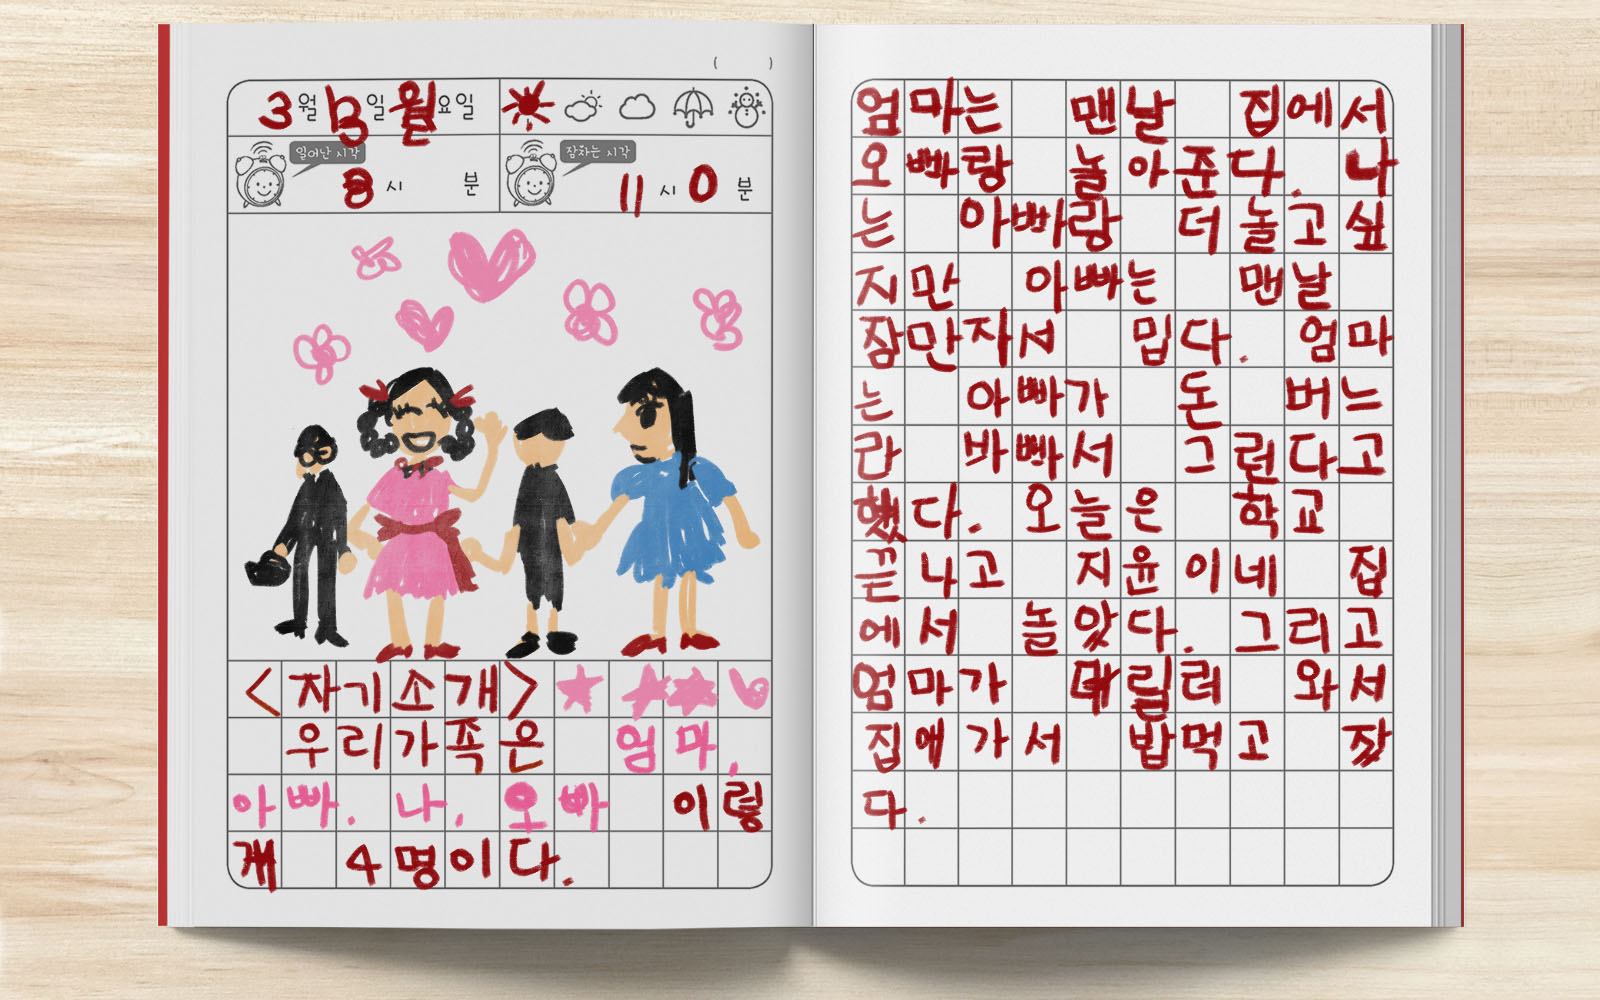 3월 13일 월요일
일어난 시각
잠자는 시각
8시 분
11시 0분
<자기소개>
우리가족은 엄마,
아빠. 나, 오빠 이렇
걔 4명이다.
엄마는 맨날 집에서
오빠랑 놀아준다. 나
는 아빠랑 더 놀고싶
지만 아빠는 맨날
잠만자서 밉다. 엄마
는 아빠가 돈 버느
라 바빠서 그런다고
했다. 오늘은 학교
끝나고 지윤이네 집
에서 놀았다. 그리고
엄마가 데릴러 와서
집애가서 밥먹고 잤
다.